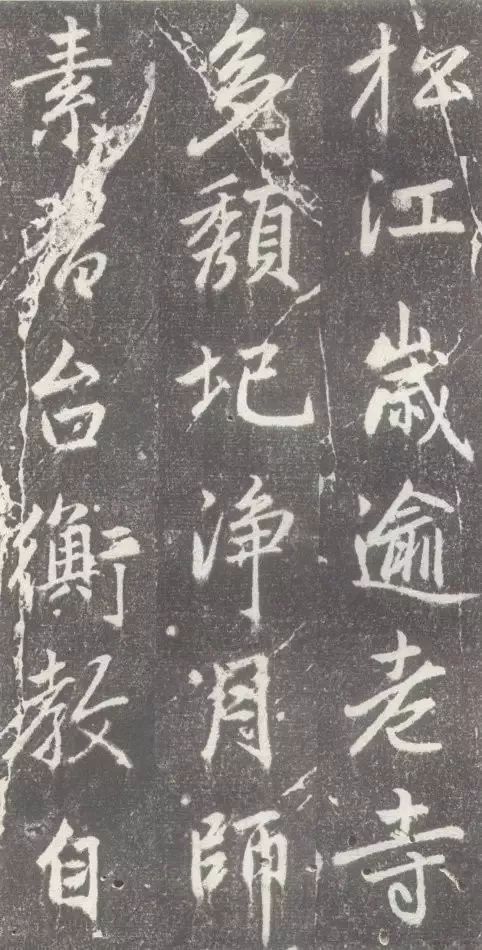 於江歲逾老寺
多頹圮淨月師
素習台衡教自